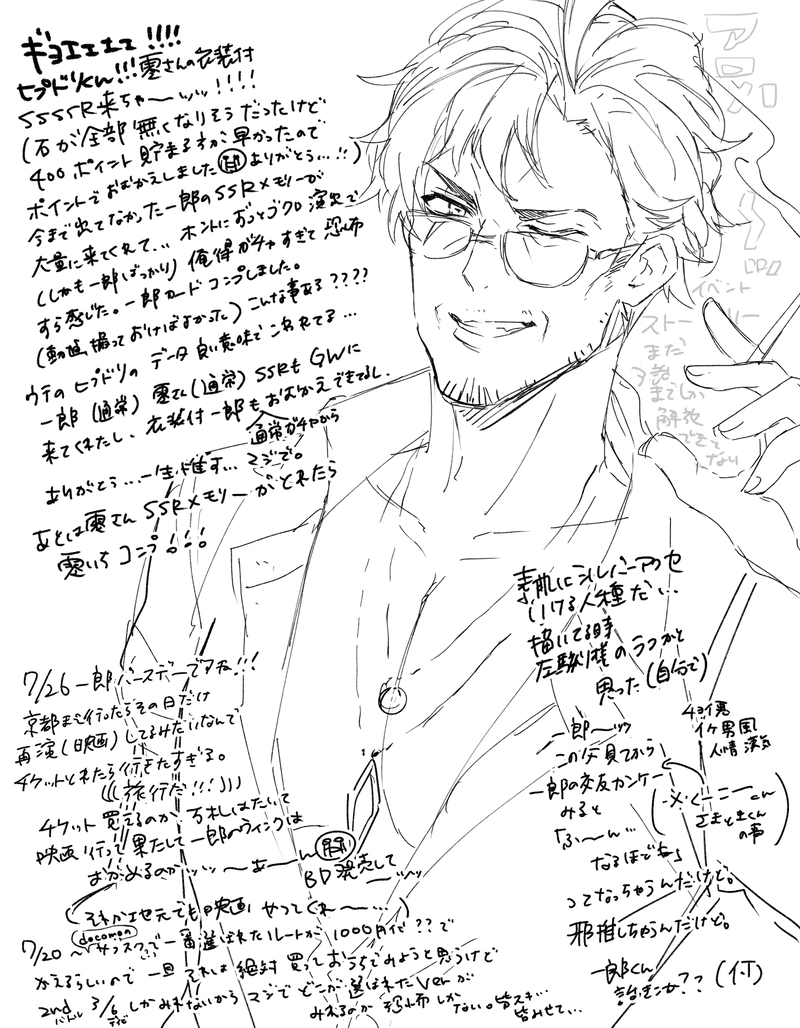 ギョエエエエ!!!!
ヒプドリくん!!!零さんの衣装付
SSSSR来ちゃ〜ッッ!!!!
(石が全部無くなりそうだったけど
400ポイント貯まる方が早かったので
ポイントでおむかえしましたありがとう…!!)
今まで出てなかった一郎のSSRメモリーが
大量に来てくれて… ホントにずっとゴクロ演出で
(しかも一郎ばっかり) 俺得ガチャすぎて恐怖
すら感じた。一郎カードコンプしました。
(動画撮っておけばよかった) こんな事ある????
ウチのヒプドリのデータ良い意味でこわれてる…
一郎(通常) 零さん(通常) SSRも GWに
来てくれたし、衣装付一郎もおむかえできてるし、
通常ガチャから
ありがとう…一生推す… マジで。
あとは零さんSSRメモリーがとれたら
零いちコンプ!!!
アロハ
〜
イベント
ストーリー
まだ
3話
までしか
解放
できて
ない
素肌にシルバーアクセ
いける人種だ…
描いてる時
左馬刻様のラフかと
思った(自分で)
7/26一郎バースデーで
京都まで行ったらその日だけ
再演(映画)してるみたいなんで
チケットとれたら行きたすぎる。
(((旅行だ!!!)))
チケット買えるのか 万札はたいて
映画行って果たして一郎のウィンクは
おがめるのかッッッ 〜あ〜ん
BD発売して
〜ッッ
(それか地元でも映画やってくれ〜…)
docomo
7/20〜サブスクで一番選ばれたルートが1000円代??で
かえるらしいので一旦それは絶対買っておうちでみようと思うけど
2ndバトル 3/6 しかみれないからマジでどこが選ばれたVerが
みれるのか恐怖しかない。皆スキ…
皆みせて…
一郎〜ッッ
この父見てから
一郎の交友カンケー
みると
「ふ〜ん…
なるほどね」
ってなっちゃうんだけど。
邪推しちゃうんだけど。
一郎くん
(汗)
チョイ悪
イケ男風
人情
の事